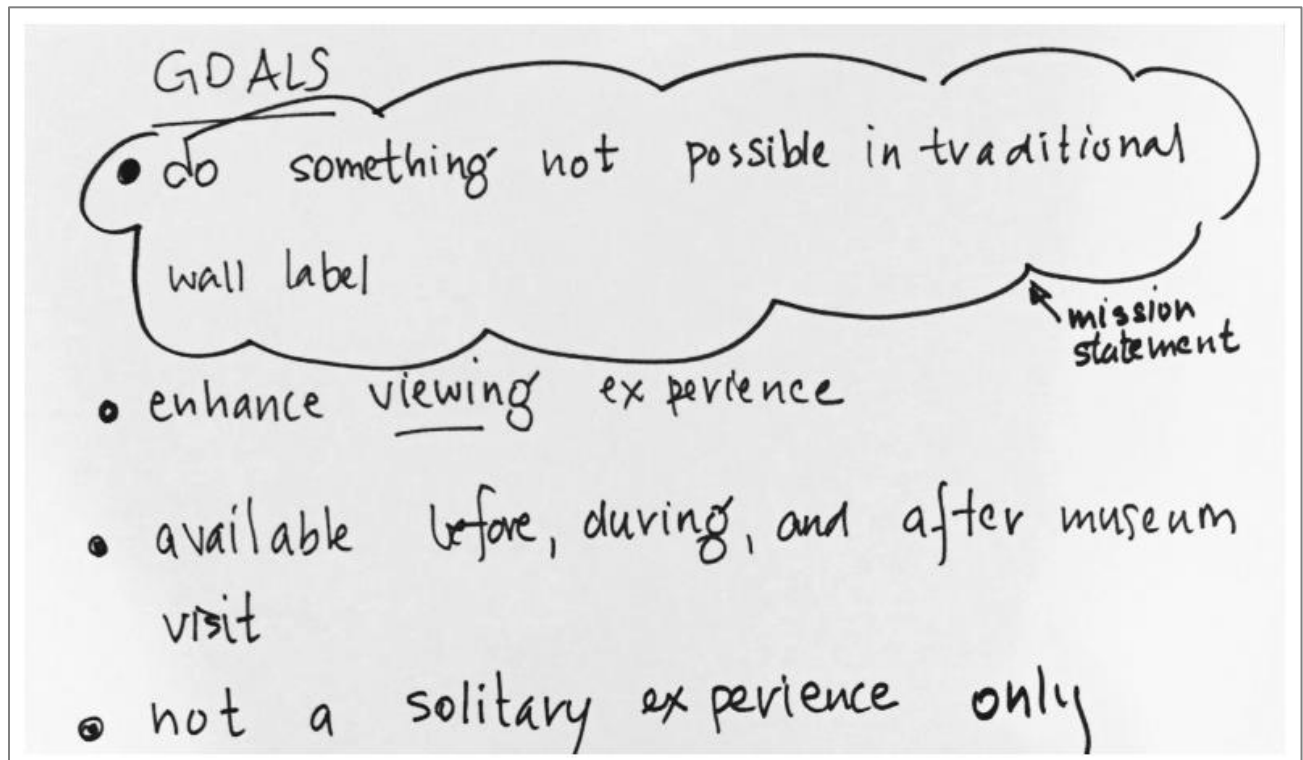 GOALS
• do something not possible in traditional
wall label
mission
statement
• enhance viewing experience
• available before, during, and after museum
visit
• not a solitary experience only